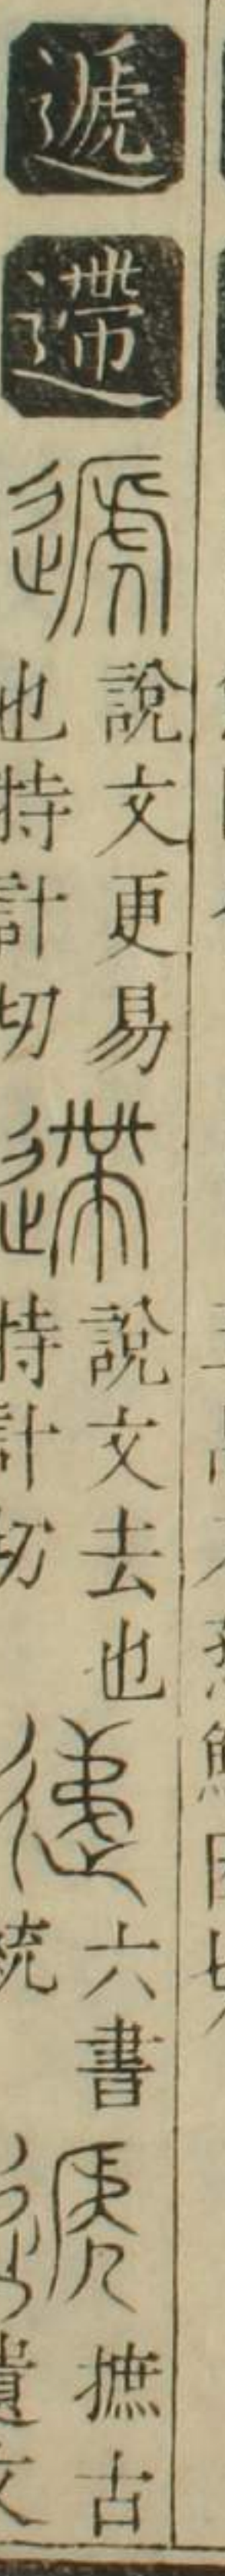 遞
遰
遞
說文更易
也特計切
遰
說文去也
特計切
六書
統
摭古
遺文